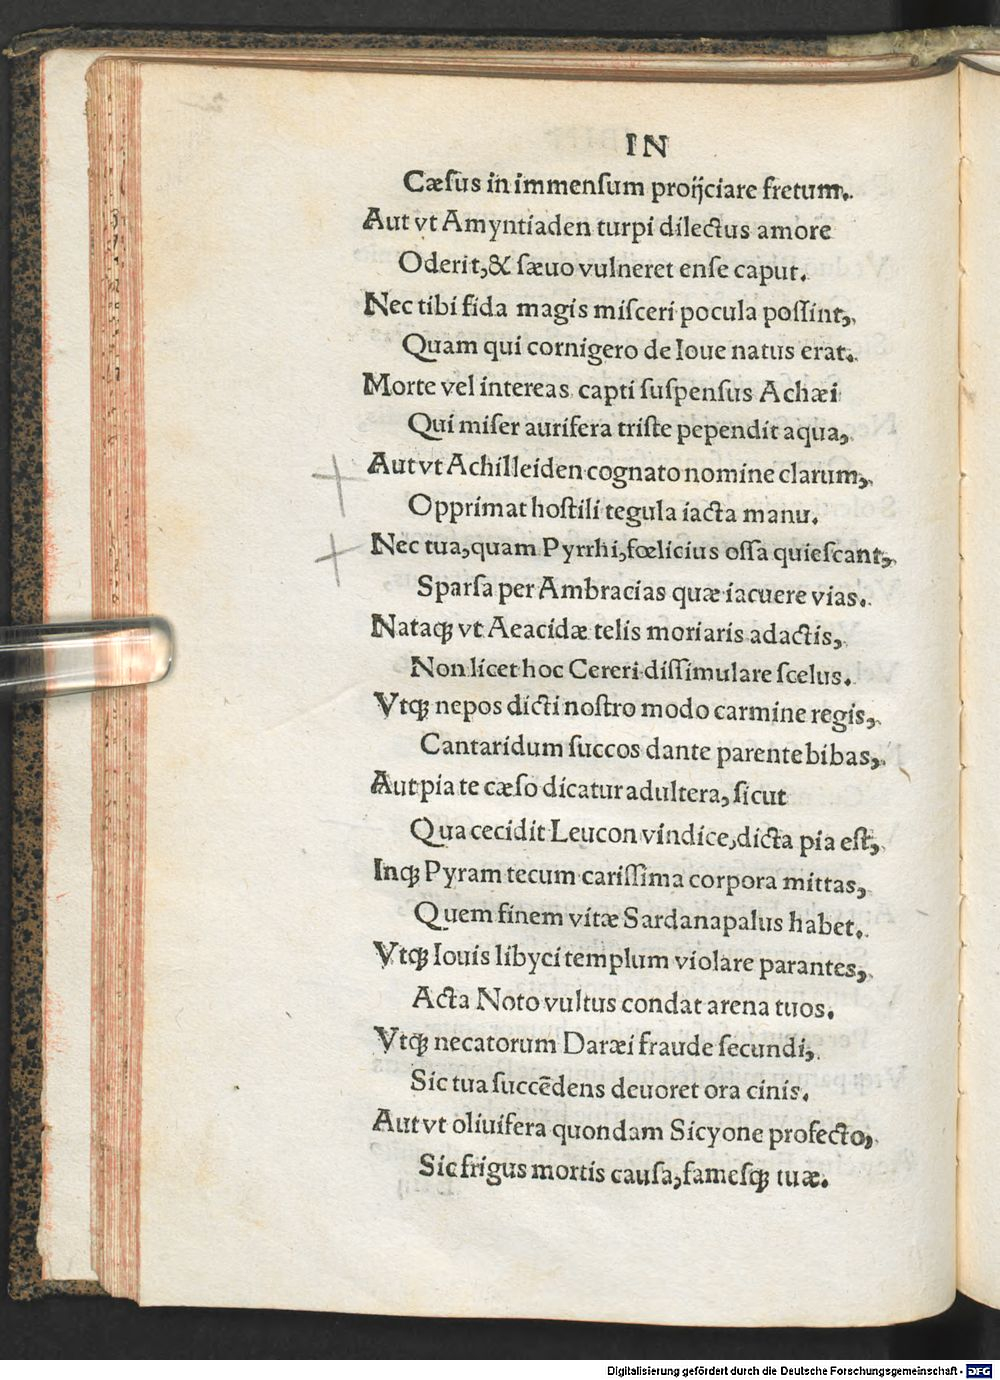 IN
Cæſus in immenſum proijciare fretum.
Aut vt Amyntiaden turpi dilectus amore
Oderit, & ſæuo vulneret enſe caput.
Nec tibi fida magis miſceri pocula poſſint,
Quam qui cornigero de Ioue natus erat.
Morte vel intereas capti ſuſpenſus Achæi
Qui miſer aurifera triſte pependit aqua,
Aut vt Achilleiden cognato nomine clarum,
Opprimat hoſtili tegula iacta manu.
Nec tua, quam Pyrrhi, fœlicius oſſa quieſcant,
Sparſa per Ambracias quæ iacuere vias.
Nataqꝫ vt Aeacidæ telis moriaris adactis,
Non licet hoc Cereri diſſimulare ſcelus.
Vtqꝫ nepos dicti noſtro modo carmine regis,
Cantaridum ſuccos dante parente bibas,
Aut pia te cæſo dicatur adultera, ſicut
Qua cecidit Leucon vindice, dicta pia eſt,
Inqꝫ Pyram tecum cariſſima corpora mittas,
Quem finem vitæ Sardanapalus habet.
Vtqꝫ Iouis libyci templum violare parantes,
Acta Noto vultus condat arena tuos.
Vtqꝫ necatorum Daræi fraude ſecundi,
Sic tua ſuccēdens deuoret ora cinis.
Aut vt oliuifera quondam Sicyone profecto,
Sic frigus mortis cauſa, fameſqꝫ tuæ.
Digitalisierung gefördert durch die Deutsche Forschungsgemeinschaft - DFG